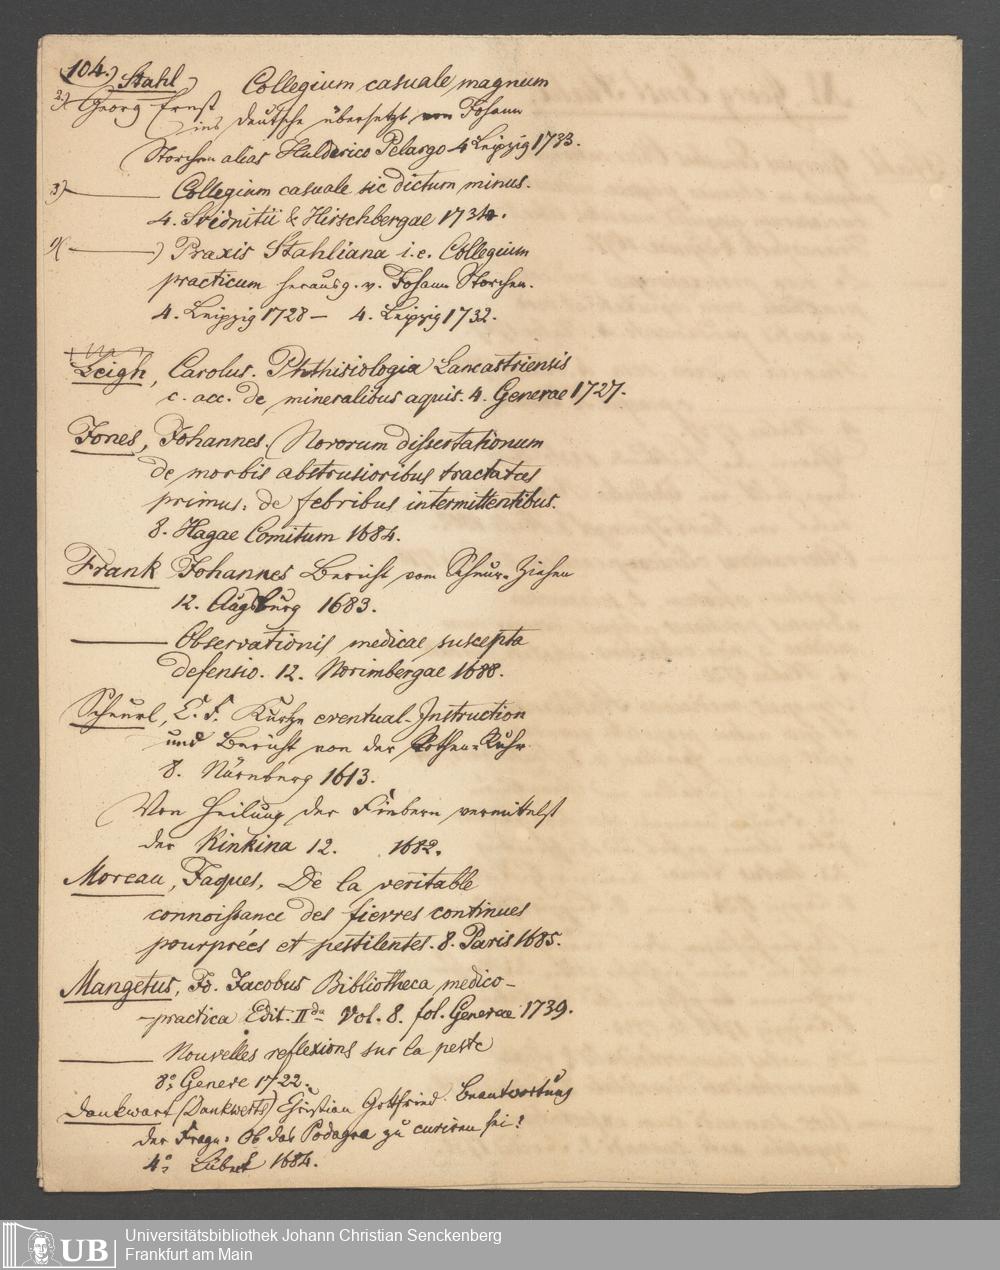 104.) Stahl) Collegium casuale magnum
2) Georg Ernst (ins Deutsche übersetzt von Johann
Storchen alias Hulderico Pelargo 4 Leipzig 1733.
3) ——— Collegium casuale sic dictum minus.
4. Svidnitii & Hirschbergae 1734.
1) ———) Praxis Stahliana i.e. Collegium
practicum herausg. v. Johann Storchen.
4. Leipzig 1728 — 4. Leipzig 1732.
Leigh, Carolus. Phthisiologia Lancastriensis
c. acc. de mineralibus aquis. 4. Genevae 1727.
Jones, Johannes. Novorum dissertationum
de morbis abstrusioribus tractatus
primus: de febribus intermittentibus.
8. Hagae Comitum 1684.
Frank Johannes Bericht vom Schnur-Ziehen
12. Augsburg 1683.
——— Observationis medicae suscepta
defensio. 12. Norimbergae 1688.
Scheurl, E. F. Kurtze eventual-Instruction
und Bericht von der Rothen-Ruhr
8. Nürnberg 1613.
Von Heilung der Fiebern vermittelst
der Kinkina 12. 1682.
Moreau, Jaques. De la veritable
connoissance des fievres continues
pourprées et pestilentes. 8. Paris 1685.
Mangetus, Jo. Jacobus Bibliotheca medico-
-practica Edit. IIda Vol. 8. fol. Genevae 1739.
——— Nouvelles reflexions sur la peste
8o. Geneve 1722.
Dankwart (Dankwerts) Christian Gottfried. Beantwortung
der Frage: Ob das Podagra zu curiren sei?
4o. Lübeck 1684.
Universitätsbibliothek Johann Christian Senckenberg
UB Frankfurt am Main